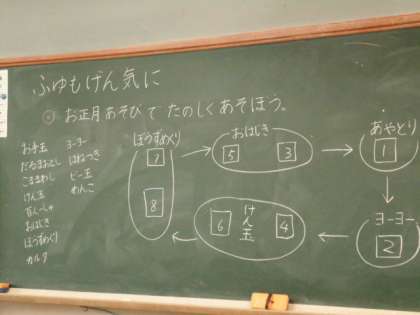 ふゆもげん気に
お正月あそびでたのしくあそぼう。
お手玉
だるまおとし
こままわし
けん玉
おはじき
ぼうずめくり
カルタ
ヨーヨー
はねつき
ビー玉
めんこ
ぼうずめくり
7
8
おはじき
5 3
あやとり
1
ヨーヨー
2
けん玉
6 4